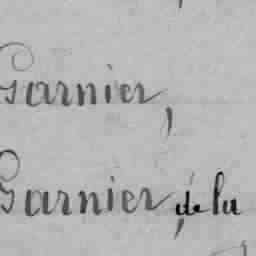 Garnier,
Garnier, de la